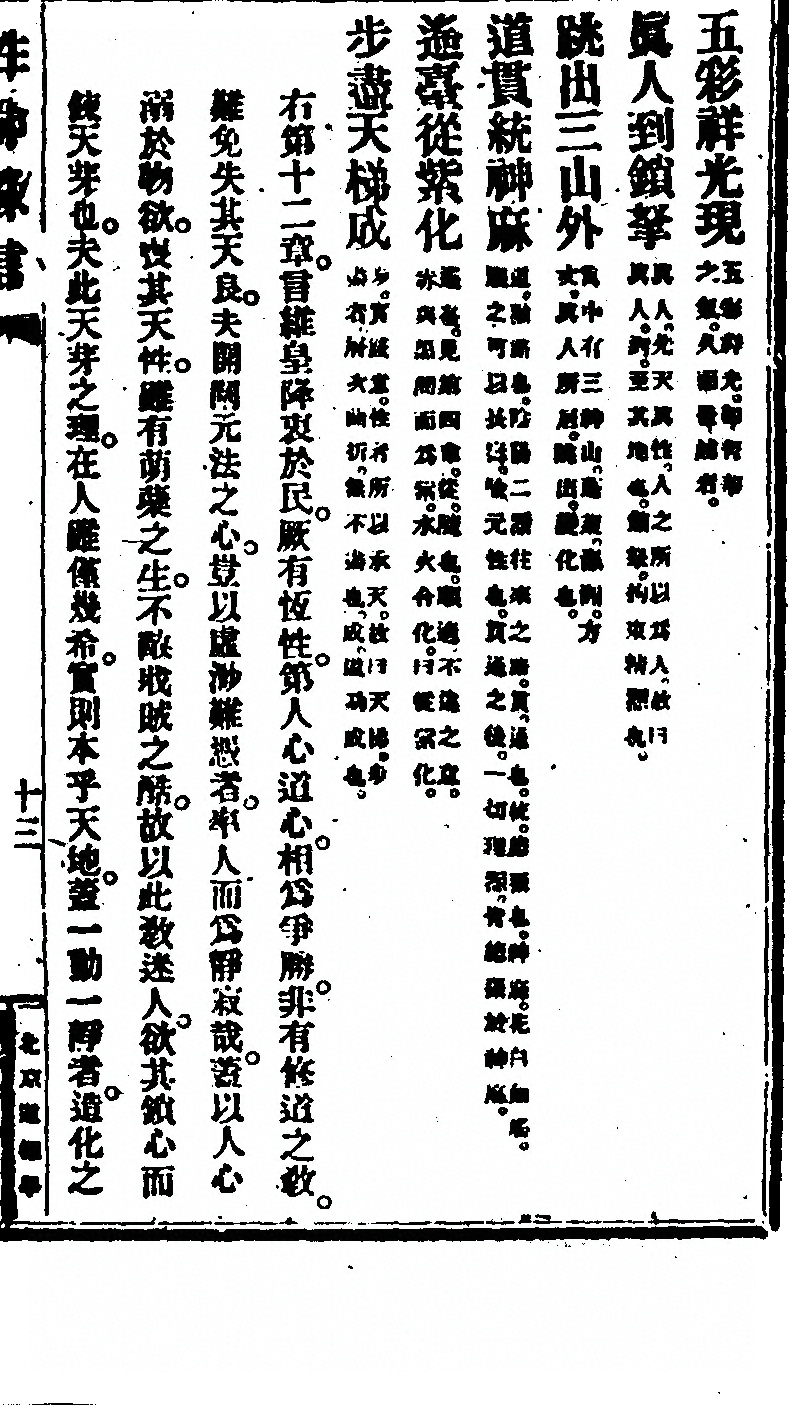 五彩祥光現 五彩祥光。卽五行之氣。久而
眞人到鎖拏 眞人。先天眞性。人之所以爲人。故曰眞人。到。至其地也。鎖拏。拘束精靈也。
跳出三山外 中有三神山。蓬萊。瀛洲。方丈。眞人所居。跳出。變化也。
道貫統神麻 道。也。陰陽二氣往來之路。貫。通也。統。總攝也。神麻。元性也。貫通之後。一切理氣。皆總攝於神麻。
遙臺從紫化 見第四章。從。隨也。順適不違之意。水與黑間而爲紫。水火合化。曰從紫化。
步盡天梯成 性者所以承天。故曰天梯。步盡者。層次曲折。無不盡也。成。道功成也。
右第十二章。言維皇降衷於民。厥有恆性。第人心道心。相爲爭勝。非有修道之敎。
難免失其天良。夫開闢元法之心。豈以虛渺難憑者。率人而爲靜寂哉。蓋以人心
溺於物欲。喪其天性。雖有萌蘖之生。不敵戕賊之酷。故以此敎迷人。欲其鎖心而
鍊天芽也。夫此天芽之理。在人雖僅幾希。實則本乎天地。蓋一動一靜者。造化之
十三
北京道德學